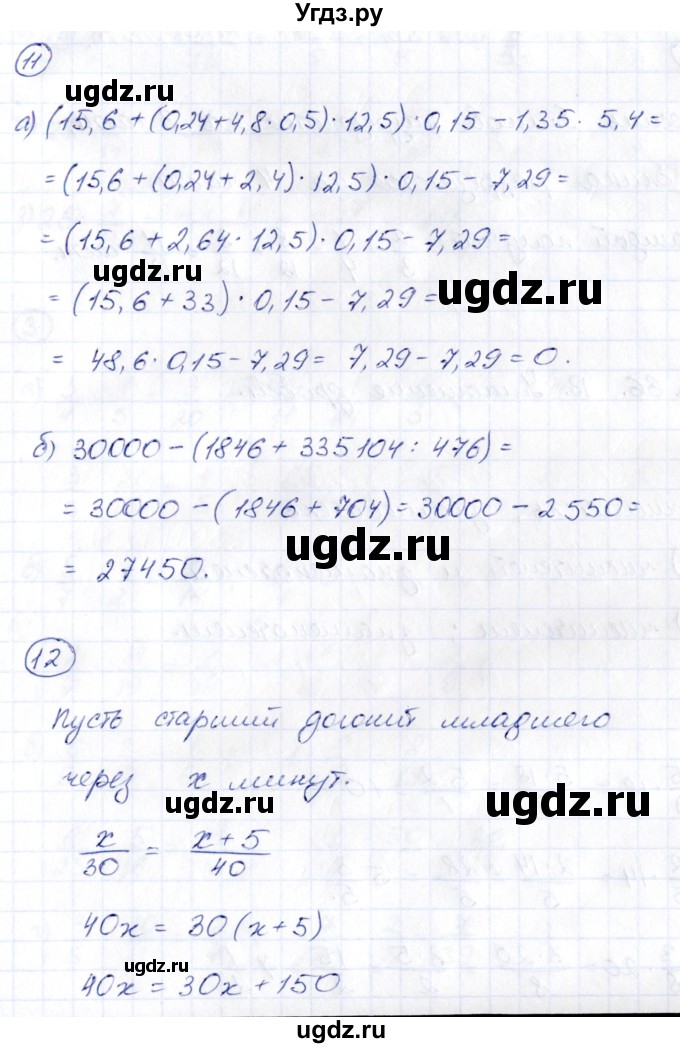 Угдз.ру
11
ugdz.ru
а) (15,6+(0,24+4,8·0,5)·12,5)·0,15-1,35·5,4=
=(15,6+(0,24+2,4)·12,5)·0,15-7,29=
=(15,6+2,64·12,5)·0,15-7,29=
ugdz.ru
ugdz.ru
=(15,6+33)·0,15-7,29=
=48,6·0,15-7,29=7,29-7,29=0.
б) 30000-(1846+335104:476)=
=30000-(1846+704)=30000-2550=
ugdz.ru
=27450.
12
Пусть старший догонит младшего
через x минут.
ugdz.ru
ugdz.ru
x/30 = x+5/40
40x=30(x+5)
ugdz.ru
40x=30x+150
ugdz.ru